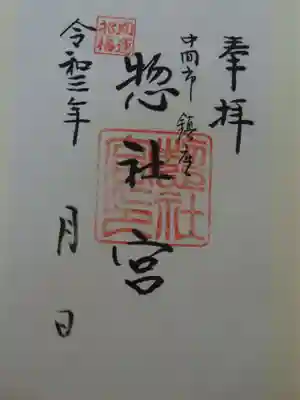 奉拝
中間市鎮座
惣社宮
令和三年 月 日
惣社宮印